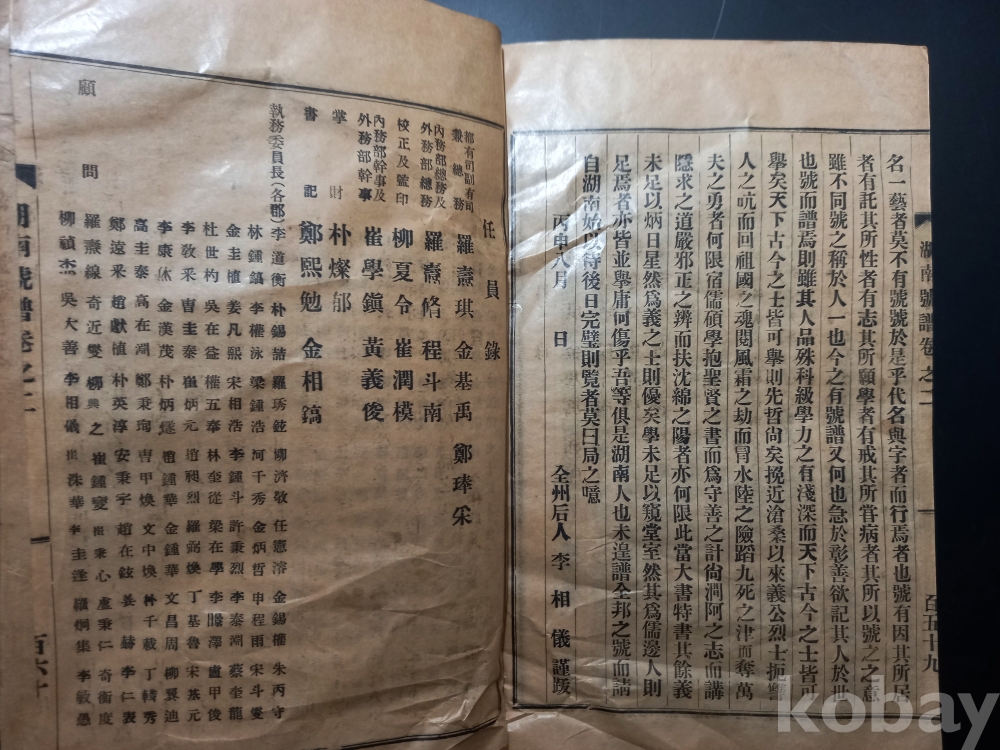 湖南號譜卷之二
百五十九
名一藝者莫不有號號於是乎代名與字者而行焉者也號有因其所居
者有託其所性者有志其所願學者有戒其所嘗病者其所以號之之意
雖不同號之稱於人一也今之有號譜又何也急於彰善欲記其人於世
也號而譜焉則雖其人品殊科級學力之有淺深而天下古今之士皆可
舉矣天下古今之士皆可舉則先哲尙矣挽近滄桑以來義公烈士扼
人之吭而回祖國之魂閱風霜之劫而冒水陸之險蹈九死之津而奪萬
夫之勇者何限宿儒碩學抱聖賢之書而爲守善之計尙澗阿之志而講
隱求之道嚴邪正之辨而扶沈綿之陽者亦何限此當大書特書其餘義
未足以炳日星然爲義之士則優矣學未足以窺堂室然其爲儒邊人則
足焉者亦皆並舉庸何傷乎吾等俱是湖南人也未遑譜全邦之號而請
自湖南始以待後日完璧則覽者莫曰局之噫
丙申八月 日 全州后人 李相儀 謹跋
任員錄
都有司副有司兼總務 羅燾琪 金基禹 鄭琫采
內務部總務及外務部總務 羅燾脩 程斗南
校正及監印 柳夏令 崔潤模
內務部幹事及外務部幹事 崔學鎭 黃義俊
掌財 朴燦郁
書記 鄭熙勉 金相鎬
執務委員長(各郡) 李道衡 朴錫喆 羅琇鉉 柳濟敬 任憲溶 金錫權 朱丙守
林鍾鎬 李權泳 梁鍾浩 河千秀 金炳哲 申程雨 宋斗燮
金圭植 姜凡熙 宋相浩 李鍾斗 許秉烈 李泰淵 蔡奎龍
杜世杓 吳在益 權五奉 林奎從 梁在學 李 澤 盧甲俊
李敎采 曺圭 崔 元 趙昶烈 羅弼煥 丁基魯 宋基元
李康休 金漢茂 朴炳燧 趙鍾華 金鍾華 文昌周 柳巽迪
高圭泰 高在淵 鄭秉珣 曺甲煥 文中煥 朴千載 丁 秀
鄭遠采 趙獻植 朴英淳 安秉宇 趙在鉉 姜 赫 李仁表
顧問 羅燾線 奇近燮 柳興之 崔鍾燮 崔秉心 盧秉仁 奇衝度
柳禎杰 吳大善 李相儀 洙華 李圭逢 羅炯集 李敏愚
湖南號譜卷之二
百六十
kobay